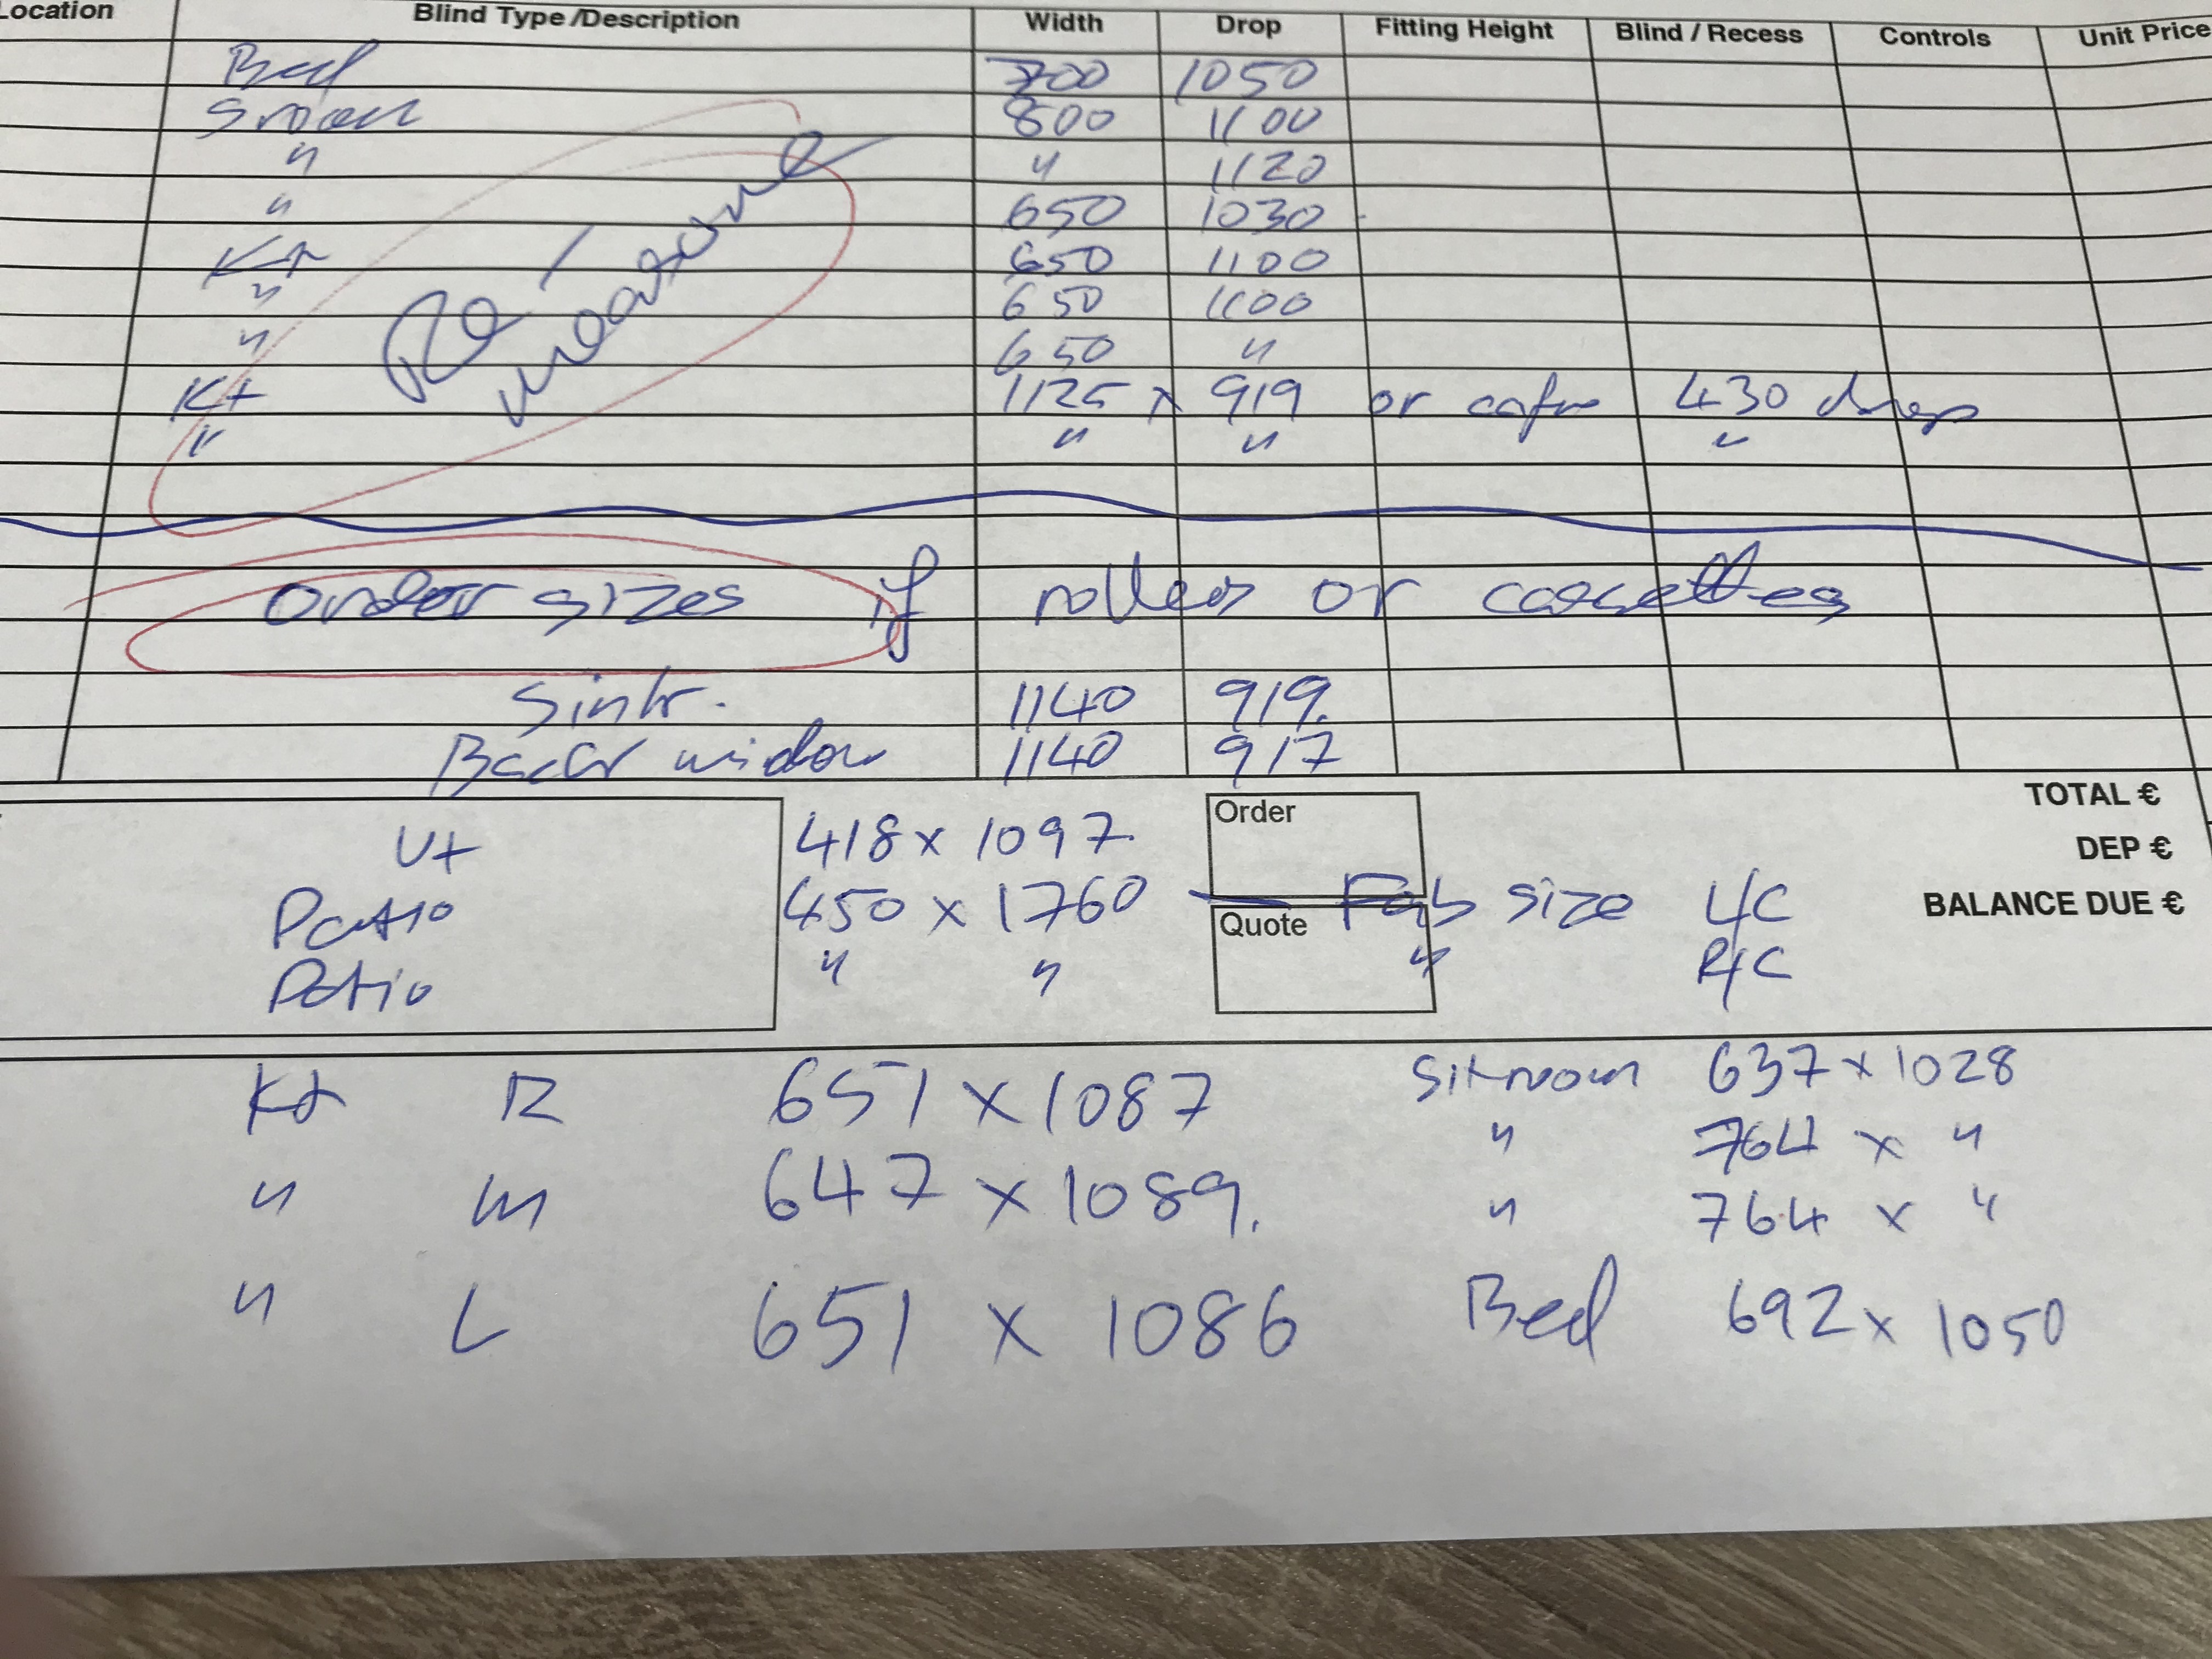 Location Blind Type /Description Width Drop Fitting Height Blind / Recess Controls Unit Price
Bed 700 1050
Sroom 800 1100
" " 1120
" 650 1030
Kt 650 1100
" 650 1100
" 650 "
Re/
measure
Kt 1125 x 919 or cafe 430 drop
" " " "
Order sizes if rollers or cassettes
Sink. 1140 919.
Back window 1140 917
TOTAL €
Ut 418 x 1097. Order
DEP €
Patio 450 x 1760 — Fab size L/C
BALANCE DUE €
Quote
Patio " " " R/C
Kt R 651 x 1087 Sitroom 637 x 1028
" " 764 x "
" M 647 x 1089. " 764 x "
" L 651 x 1086 Bed 692 x 1050